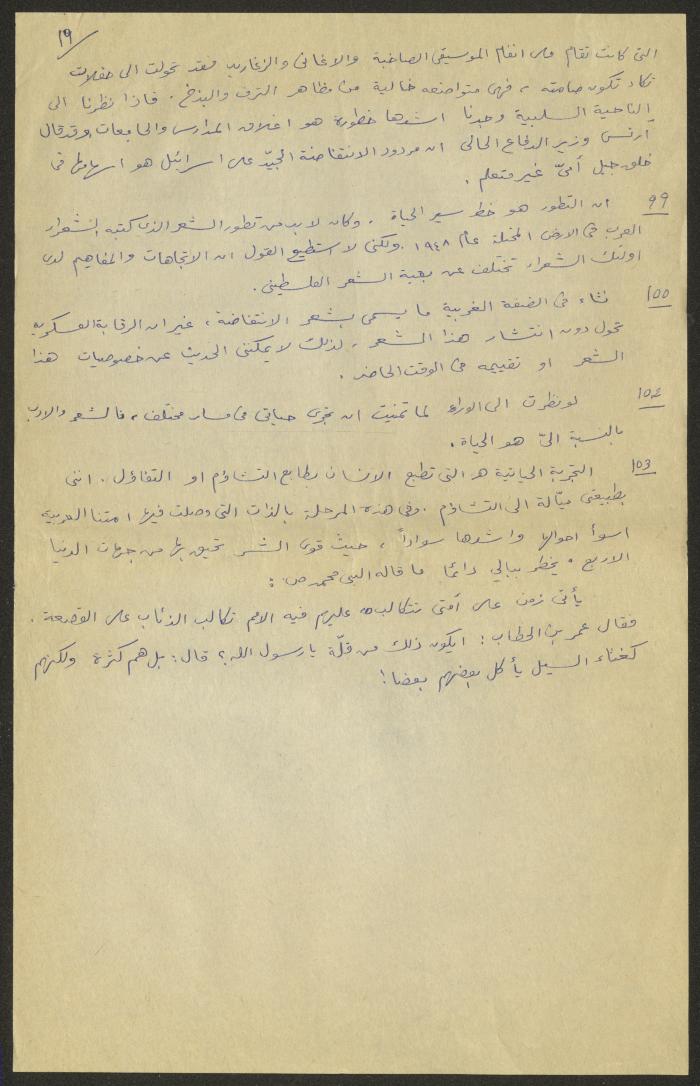 ١٩
التي كانت تقام على انغام الموسيقى الصاخبة والاغاني والزغاريد فقد تحولت الى حفلات
تكاد تكون صامته ، فهي متواضعه خالية من مظاهر الترف والبذخ . فاذا نظرنا الى
الناحية السلبية وجدنا اشدها خطورة هو اغلاق المدارس والجامعات وقد قال
آرنس وزير الدفاع الحالي ان مردود الانتفاضة الجيّد على اسرائيل هو اسهامها في
خلق جيل أميّ غير متعلم .
99 ان التطور هو خط سير الحياة . وكان لا بد من تطور الشعر الذي كتبه الشعراء
العرب في الارض المحتلة عام ١٩٤٨ . ولكني لا استطيع القول ان الاتجاهات والمفاهيم لدى
اولئك الشعراء تختلف عن بقية الشعر الفلسطيني .
100 نشاء في الضفة الغربية ما يسمى بشعر الانتفاضة ، غير ان الرقابة العسكريه
تحول دون انتشار هذا الشعر ، لذلك لا يمكنني الحديث عن خصوصيات هذا
الشعر او تقييمه في الوقت الحاضر .
102 لو نظرت الى الوراء لما تمنيت ان تجري حياتي في مسار مختلف ، فالشعر والادب
بالنسبة اليّ هو الحياة .
103 التجربة الحياتية هي التي تطبع الانسان بطابع التشاؤم او التفاؤل . انني
بطبيعتي ميّالة الى التشاؤم . وفي هذه المرحلة بالذات التي وصلت فيها امتنا العربيه
اسوأ احوالها واشدها سواداً ، حيث قوى الشر تحيق بها من جهات الدنيا
الاربع . يخطر ببالي دائما ما قاله النبي محمد ص :
يأتي زمن على أمتي تتكالب عليهم فيه الامم تكالب الذئاب على القصعة .
فقال عمر بن الخطاب : ايكون ذلك من قلّة يا رسول الله ؟ قال : بل هم كثرة ولكنهم
كغثاء السيل يأكل بعضهم بعضا !